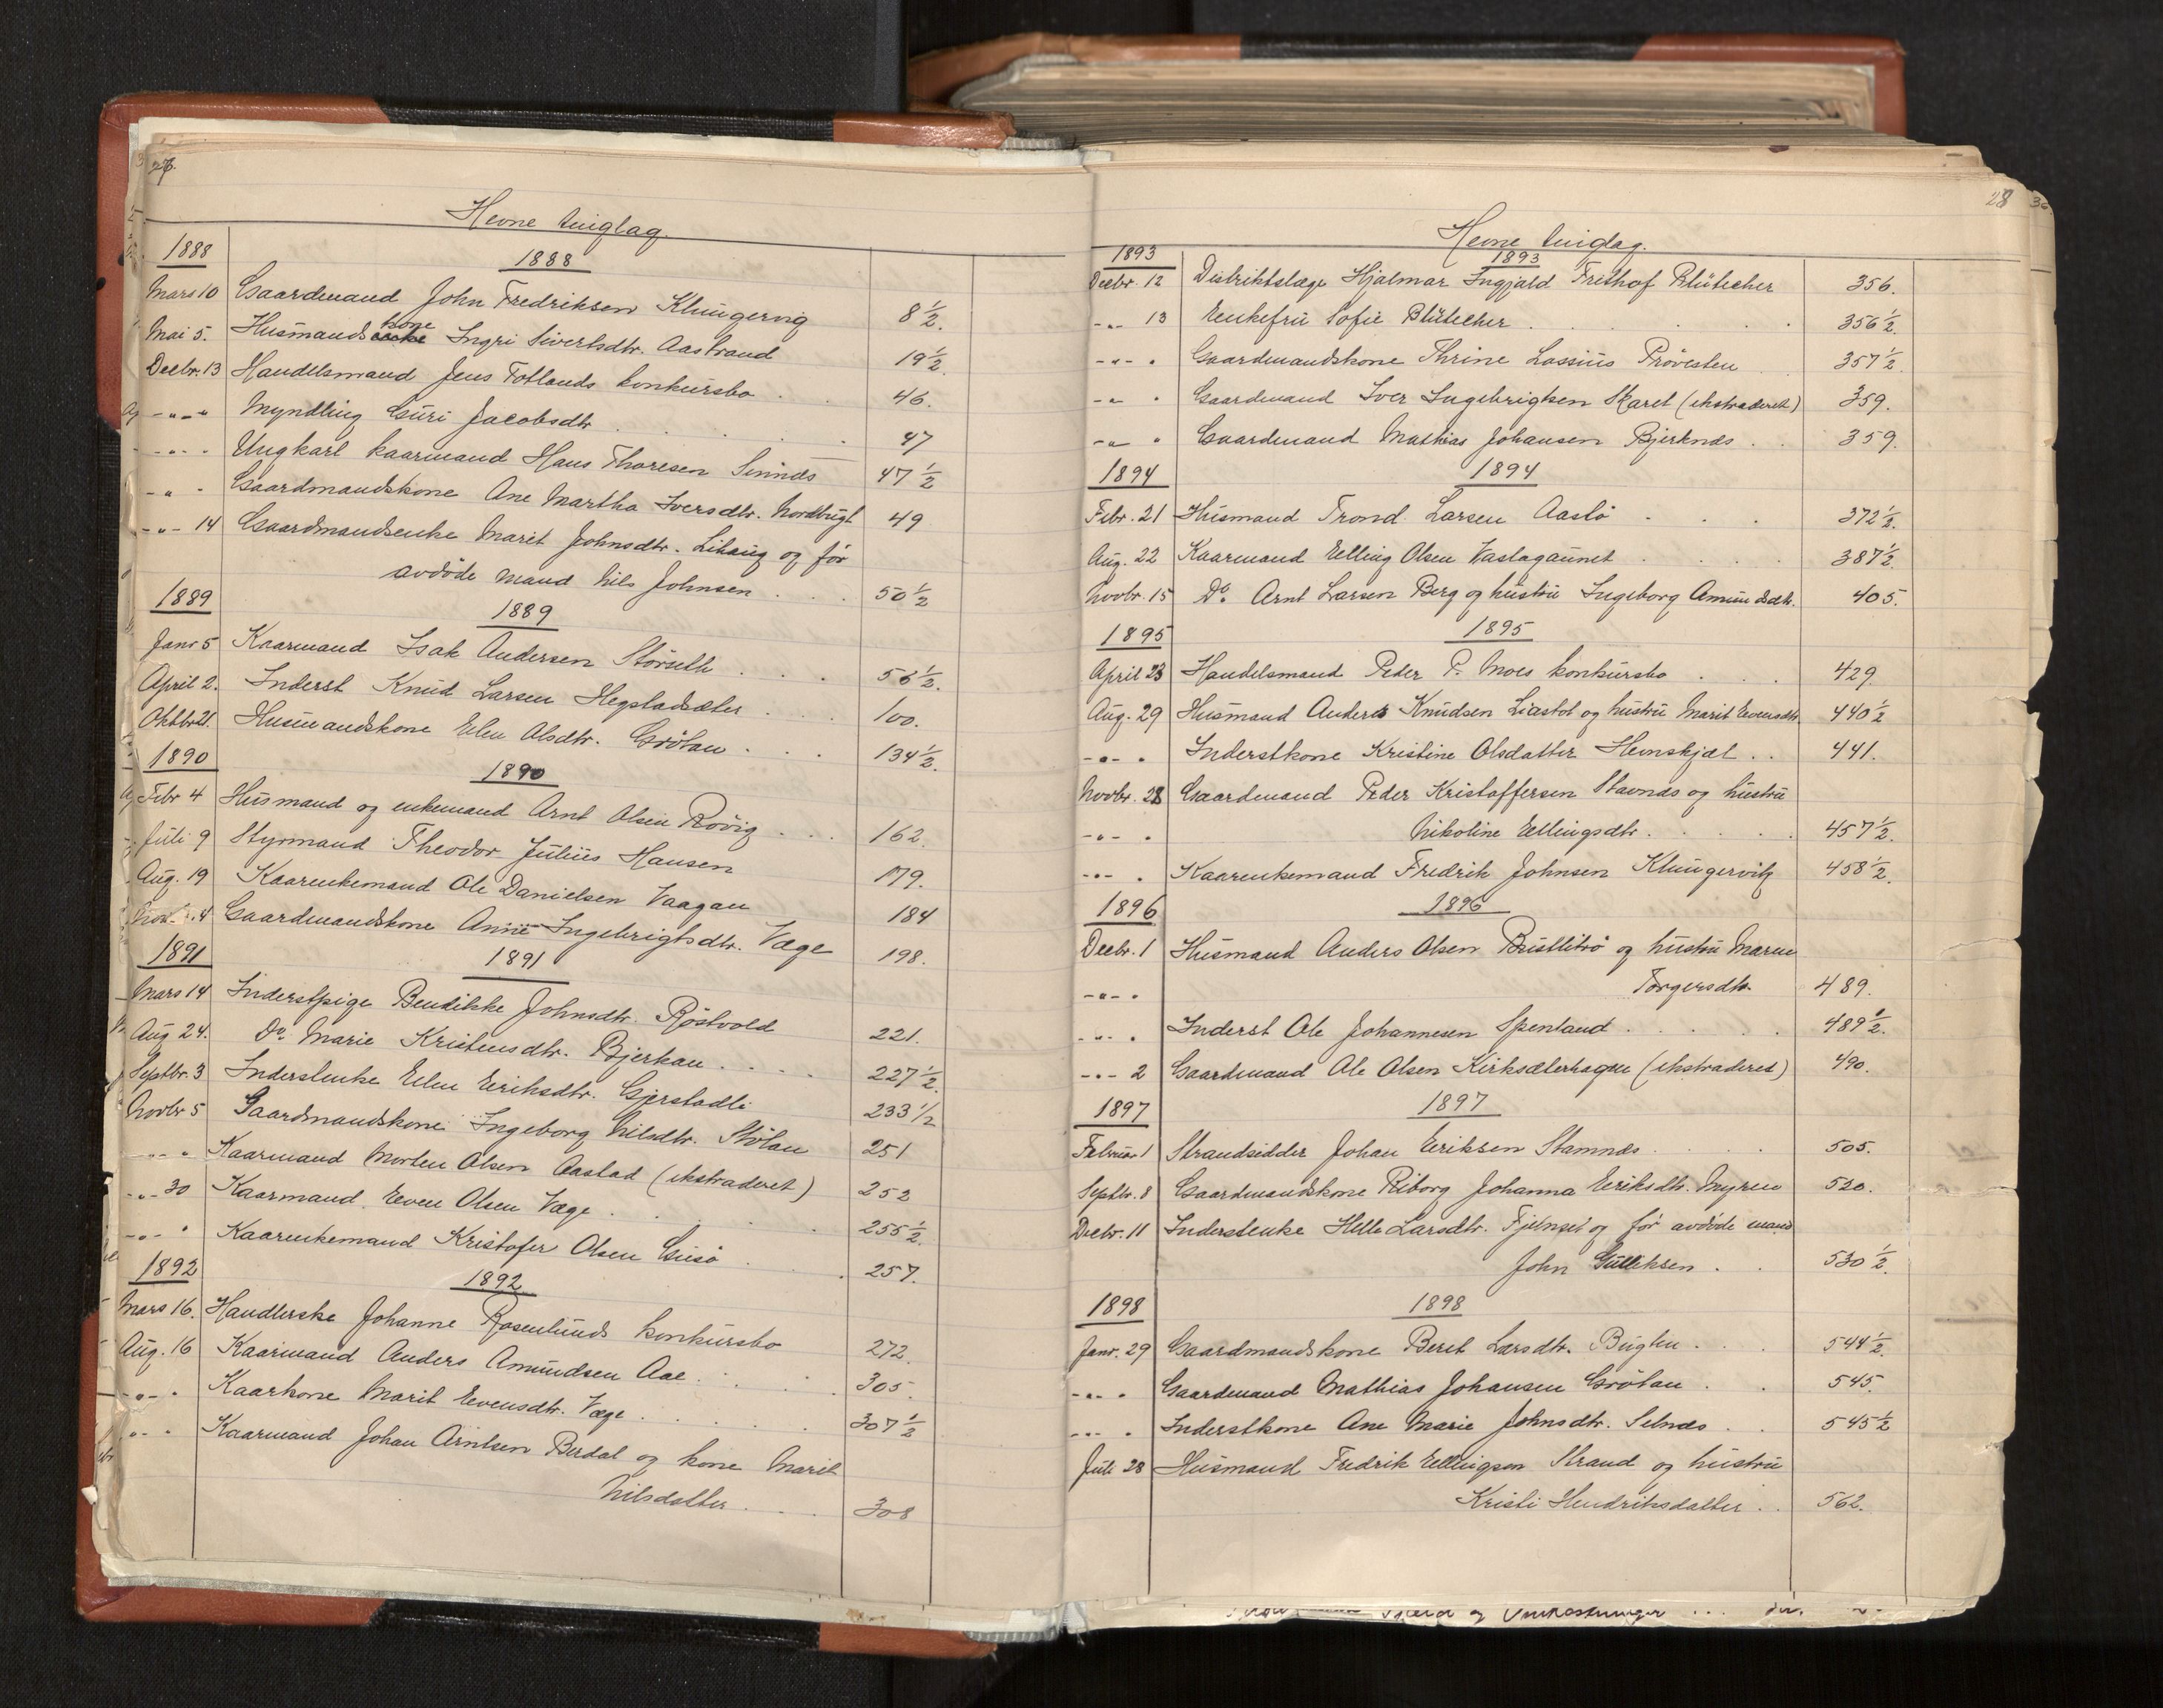 27.
Hevne tinglag.
1888
1888
Mars 10 Gaardmand John Fredriksen Klungervig 8 1/2.
Mai 5. Husmandskone Ingri Sivertsdtr. Aastrand 19 1/2.
Decbr. 13 Handelsmand Jens Totlands konkursbo . . 46.
-"- " Myndling Guri Jacobsdtr . . . . 47
-"- " Ungkarl kaarmand Hans Thoresen Sinnæs 47 1/2
-"- " Gaardmandskone Ane Martha Iversdtr. Nordbugt 49
-"- 14 Gaardmandsenke Marit Johnsdtr. Lihaug og for
avdöde mand Nils Johnsen . . . 50 1/2
1889
1889
Janr 5 Kaarmand Isak Andersen Störseth . . . 56 1/2.
April 2. Inderst Knud Larsen Hegstadsæter . . 100.
Oktbr. 21. Husmandskone Elen Olsdtr. Grötan . . . 134 1/2.
1890
1890
Febr 4 Husmand og enkemand Arnt Olsen Rövig . . . 162.
Juli 9 Styrmand Theodor Julius Hansen 179.
Aug. 19 Kaarenkemand Ole Danielsen Vaagan 184
4 Gaardmandskone Anne Ingebrigtsdtr. Væge 198.
1891
1891
Mars 14 Inderstpige Bendikke Johnsdtr. Röstvold 221.
Aug 24. Do. Marie Kristensdtr. Bjerkan . . . . 227 1/2.
Septbr. 3 Inderstenke Elen Eriksdtr. Gjerstadli 233 1/2
Novbr 5 Gaardmandskone Ingeborg Nilsdtr. Stölan 251
-"- " Kaarmand Morten Olsen Aastad (ekstraderet) 252
-"- 30 Kaarmand Even Olsen Væge . . . . 255 1/2.
-"- " Kaarenkemand Kristofer Olsen Gusö . . 257.
1892
1892
Mars 16. Handlerske Johanne Rosenlunds konkursbo 272.
Aug. 16 Kaarmand Anders Amundsen Aae . . . . 305.
-"- . Kaarkone Marit Evensdtr. Væge . . . . 307 1/2
-"- . Kaarmand Johan Arntsen Berdal og kone Marit
Nilsdatter . . . 308
28
Hevne tinglag.
1893
1893
Decbr. 12 Distriktslæge Hjalmar Ingjald Frithof Blütecher 356.
-"- 13 Enkefru Sofie Blütecher . . . . . 356 1/2.
-"- . Gaardmandskone Thrine Lossius Prövesten 357 1/2.
-"- . Gaardmand Iver Ingebrigtsen Skaret (ekstraderet) 359.
-"- . Gaardmand Mathias Johansen Bjerknæs . . 359.
1894
1894
Febr. 21 Husmand Trond Larsen Aaslö . . . 372 1/2.
Aug. 22 Kaarmand Elling Olsen Vaslagaunet . . . . 387 1/2.
Novbr. 15 Do. Arnt Larsen Berg og hustru Ingeborg Amundsdtr. 405.
1895
1895
April 23 Handelsmand Peder P. Moes konkursbo . . . 429.
Aug. 29 Husmand Anders Knudsen Liastol og hustru Marit Evensdtr. 440 1/2
-"- . Inderstkone Kristine Olsdatter Hemskjæl . . 441.
Novbr. 28 Gaardmand Peder Kristoffersen Stavnæs og hustru
-"- . Nikoline Ellingsdtr. . . . . . 457 1/2.
-"- . Kaarenkemand Fredrik Johnsen Klungervik 458 1/2.
1896
1896
Decbr. 1 Husmand Anders Olsen Bustlitrö og hustru Maren
-"- . Torgersdtr. 489.
-"- . Inderst Ole Johannesen Spenland . . . . . 489 1/2.
-"- 2 Gaardmand Ole Olsen Kirksæterhagen (ekstraderet) 490.
1897
1897
Februar 1 Strandsidder Johan Eriksen Stamnæs . . . . 505.
Septbr. 8 Gaardmandskone Riborg Johanna Eriksdtr. Myren 520.
Decbr. 11 Inderstenke Helle Larsdtr. Fjelnset og for avdöde mand
John Gulliksen . . 530 1/2.
1898
1898
Janr. 29 Gaardmandskone Beret Larsdtr. Bugten . . . 544 1/2.
-"- . Gaardmand Mathias Johansen Grötan . . 545.
-"- . Inderstkone Ane Marie Johnsdtr. Selnæs . . 545 1/2
Juli 28 Husmand Fredrik Ellingsen Strand og hustru
Kristi Hendriksdatter . . 562.